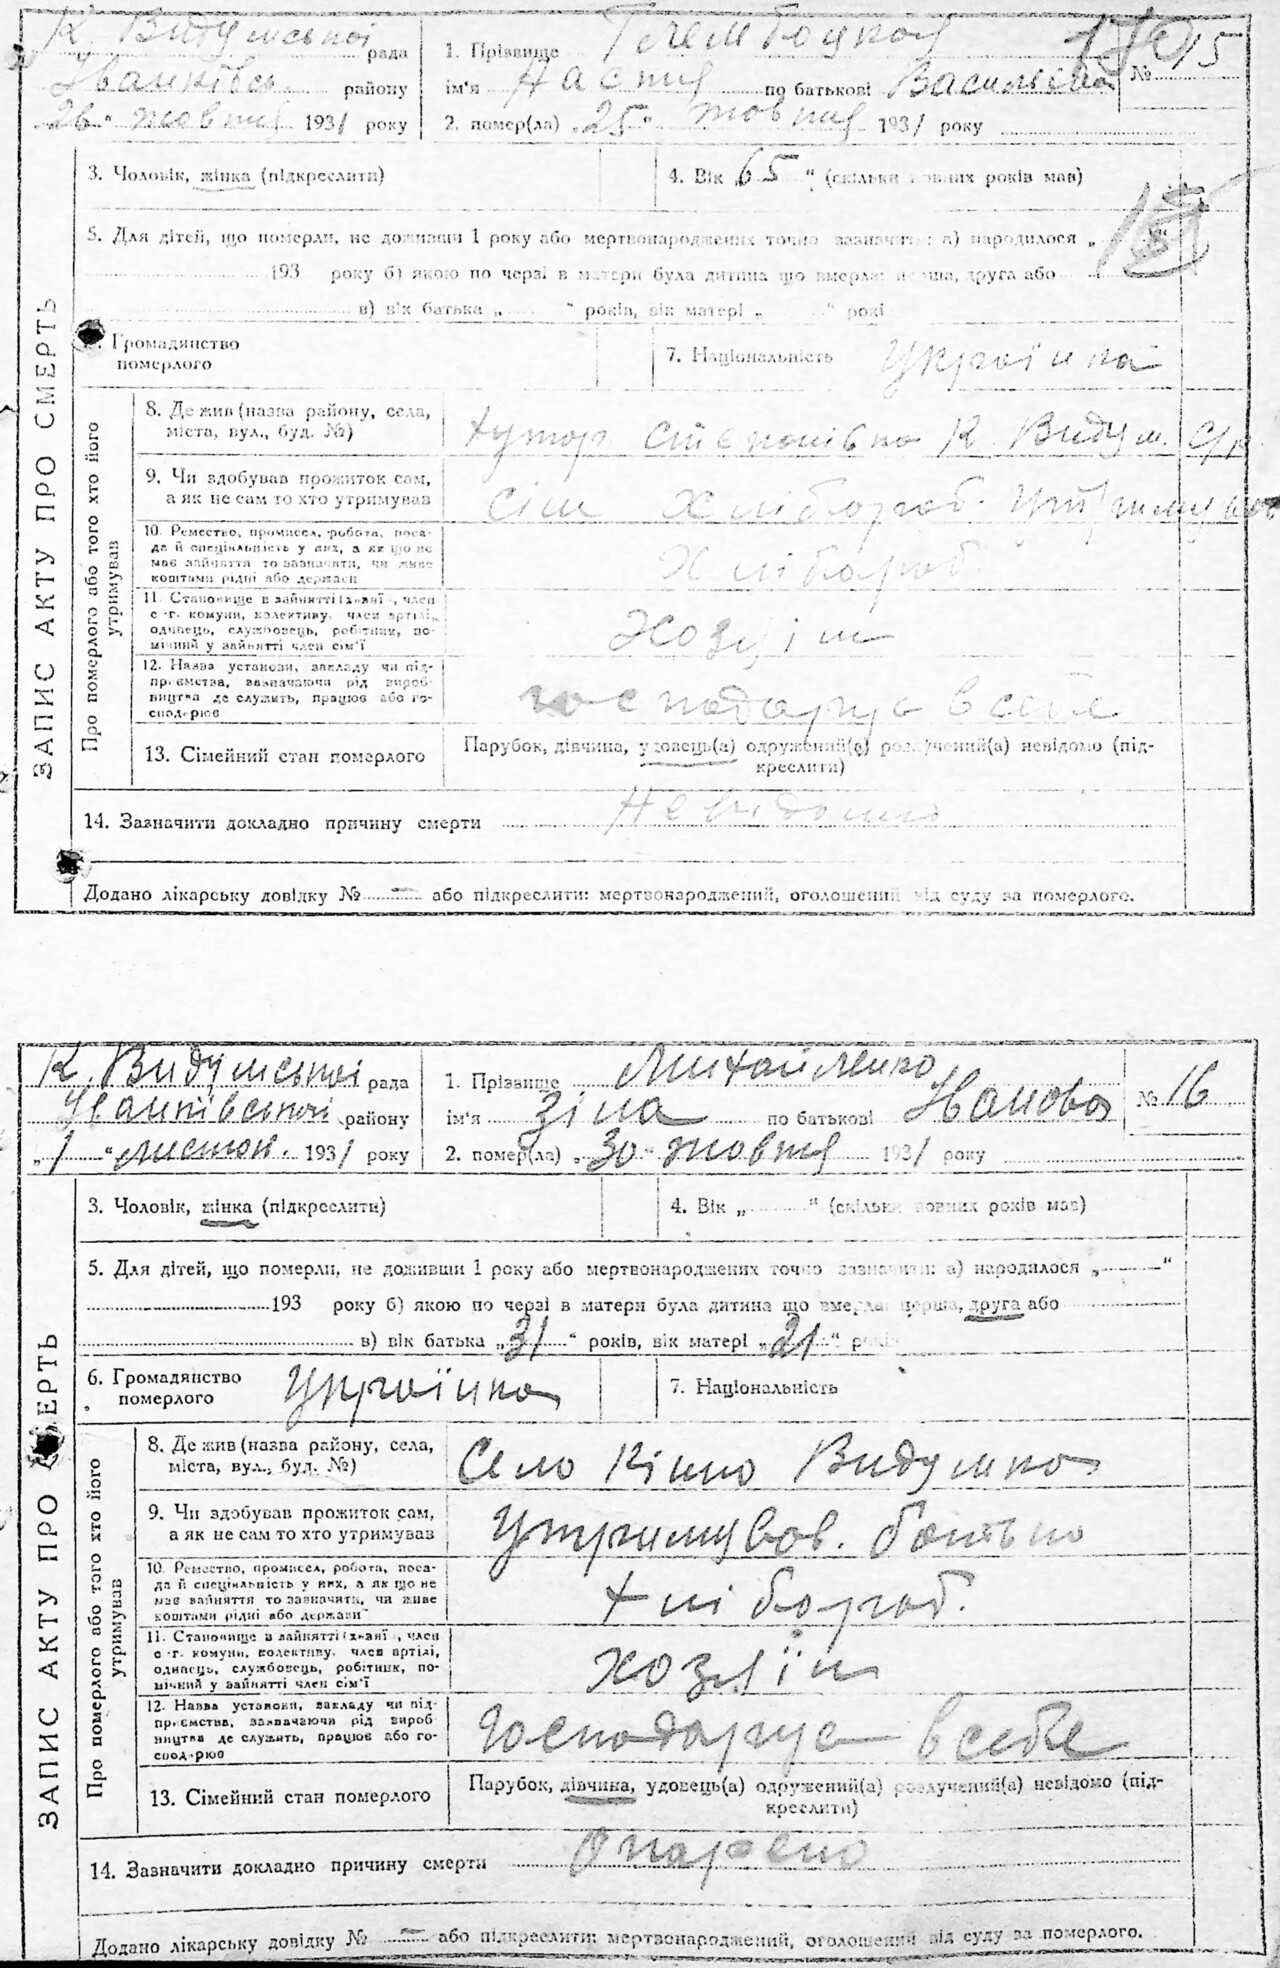 К. Видумської рада
1. Прізвище Глембоцкая
№ 15
Іванківсь. району
ім'я Настя по батькові Васильєва
„26“ жовтня 1931 року
2. помер(ла) „25“ жовтня 1931 року
3. Чоловік, жінка (підкреслити)
4. Вік „65“ (скільки повних років мав)
5. Для дітей, що померли, не доживши 1 року або мертвонароджених точно зазначити: а) народилося „
193 року б) якою по черзі в матери була дитина що вмерла: перша, друга або
в) вік батька „ “ років, вік матері „ “ рокі
Громадянство
померлого
7. Національність Українка
ЗАПИС АКТУ ПРО СМЕРТЬ
Про померлого або того хто його
утримував
8. Де жив (назва району, села,
міста, вул., буд. №)
хутор Степанівка К. Видум. С/р
9. Чи здобував прожиток сам,
а як не сам то хто утримував
сін хлібороб.
10. Ремество, промисел, робота, поса-
да й спеціяльність у них, а як що не
має зайняття то зазначити, чи живе
коштами рідні або держави
Хлібороб
11. Становище в зайнятті (хазяї , член
с -г. комуни, колективу, член артілі,
одинець, службовець, робітник, по-
мічний у зайнятті член сім'ї
Хозяїн
12. Назва установи, закладу чи під-
приємства, зазначаючи рід вироб-
ництва де служить, працює або го-
сподарює
господарує в себе
13. Сімейний стан померлого
Парубок, дівчина, удовець(а) одружений(а) розлучений(а) невідомо (під-
креслити)
14. Зазначити докладно причину смерти Невідомо
Додано лікарську довідку № — або підкреслити: мертвонароджений, оголошений від суду за померлого.
К. Видумської рада
1. Прізвище Михайленко
№ 16
Іванківської району
ім'я Зіна по батькові Іванова
„1“ листоп. 1931 року
2. помер(ла) „30“ жовтня 1931 року
3. Чоловік, жінка (підкреслити)
4. Вік „ “ (скільки повних років мав)
5. Для дітей, що померли, не доживши 1 року або мертвонароджених точно зазначити: а) народилося „ “
193 року б) якою по черзі в матери була дитина що вмерла: перша, друга або
в) вік батька „31“ років, вік матері „21“ років
6. Громадянство
померлого
Українка
7. Національність
ЗАПИС АКТУ ПРО СМЕРТЬ
Про померлого або того хто його
утримував
8. Де жив (назва району, села,
міста, вул., буд. №)
Село Кішно Видумка
9. Чи здобував прожиток сам,
а як не сам то хто утримував
Утримував. батько
10. Ремество, промисел, робота, поса-
да й спеціяльність у них, а як що не
має зайняття то зазначити, чи живе
коштами рідні або держави
Хлібороб.
11. Становище в зайнятті (хазяї , член
с -г. комуни, колективу, член артілі,
одинець, службовець, робітник, по-
мічний у зайнятті член сім'ї
Хозяїн
12. Назва установи, закладу чи під-
приємства, зазначаючи рід вироб
ництва де служить, працює або го-
сподарює
Господарує в себе
13. Сімейний стан померлого
Парубок, дівчина, удовець(а) одружений(а) розлучений(а) невідомо (під-
креслити)
14. Зазначити докладно причину смерти Опарено
Додано лікарську довідку № — або підкреслити: мертвонароджений, оголошений від суду за померлого.